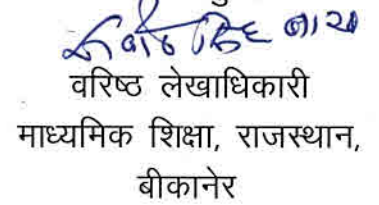 सिंह
वरिष्ठ लेखाधिकारी
माध्यमिक शिक्षा, राजस्थान,
बीकानेर